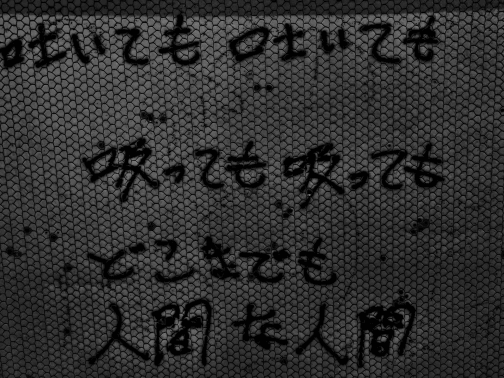 吐いても 吐いても
吸っても 吸っても
どこまでも
人間な人間